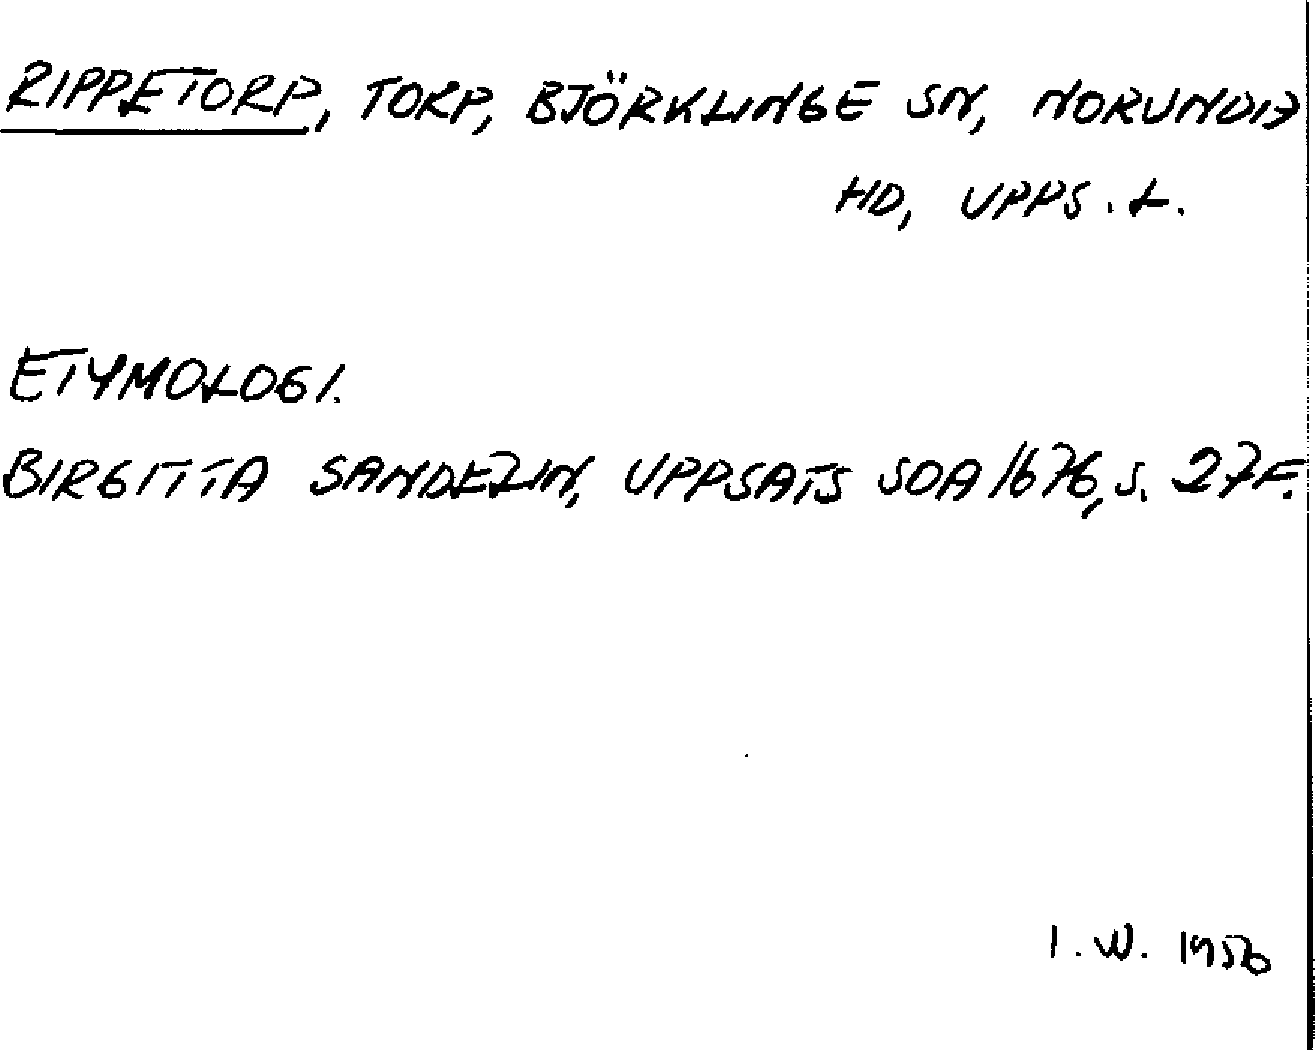 RIPPETORP, TORP, BJÖRKLINGE SN, NORUNDA
HD, UPPS. L.
ETYMOLOGI.
BIRGITTA SANDELIN, UPPSATS SOA 1676, S. 27F.
I. W. 1956